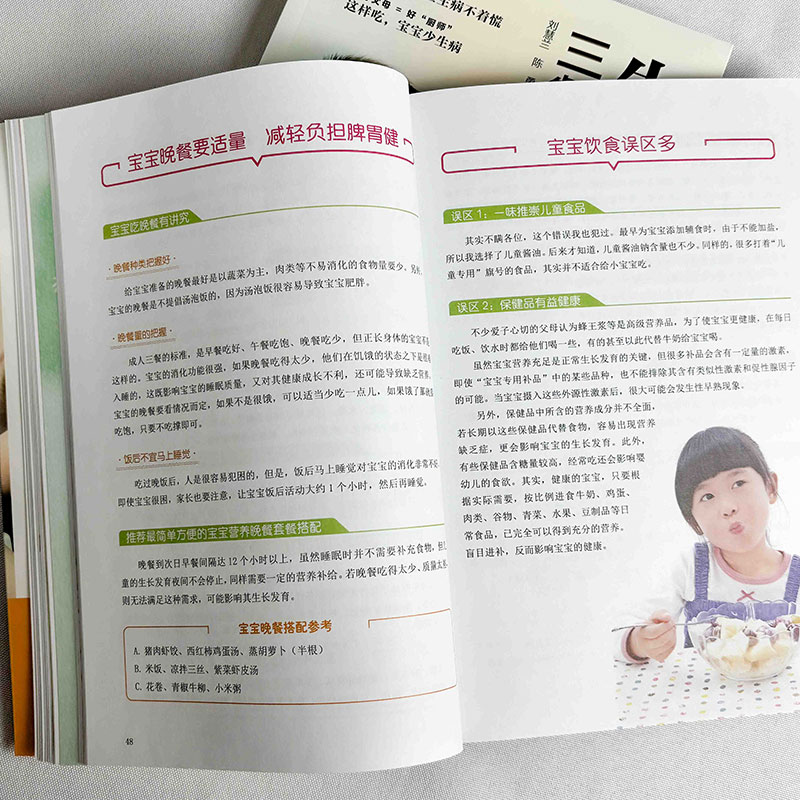 生病不着慌
父母=好“厨师”
这样吃，宝宝少生病
刘慧兰 陈
三
宝宝晚餐要适量 减轻负担脾胃健
宝宝吃晚餐有讲究
·晚餐种类把握好·
给宝宝准备的晚餐最好是以蔬菜为主，肉类等不易消化的食物量要少，
宝宝的晚餐是不提倡汤泡饭的，因为汤泡饭很容易导致宝宝肥胖。
·晚餐量的把握·
成人三餐的标准，是早餐吃好、午餐吃饱、晚餐吃少，但正长身体的宝宝
这样的。宝宝的消化功能很强，如果晚餐吃得太少，他们在饥饿的状态之下是
入睡的，这既影响宝宝的睡眠质量，又对其健康成长不利，还可能导致缺乏营养。
宝宝的晚餐要看情况而定，如果不是很饿，可以适当少吃一点儿，如果饿了那就
吃饱，只要不吃撑即可。
·饭后不宜马上睡觉·
吃过晚饭后，人是很容易犯困的，但是，饭后马上睡觉对宝宝的消化非常不
即使宝宝很困，家长也要注意，让宝宝饭后活动大约1个小时，然后再睡觉。
推荐最简单方便的宝宝营养晚餐套餐搭配
晚餐到次日早餐间隔达12个小时以上，虽然睡眠时并不需要补充食物，但
童的生长发育夜间不会停止，同样需要一定的营养补给。若晚餐吃得太少、质量太
则无法满足这种需求，可能影响其生长发育。
宝宝晚餐搭配参考
A. 猪肉虾饺、西红柿鸡蛋汤、蒸胡萝卜（半根）
B. 米饭、凉拌三丝、紫菜虾皮汤
C. 花卷、青椒牛柳、小米粥
48
宝宝饮食误区多
误区1：一味推崇儿童食品
其实不瞒各位，这个错误我也犯过。最早为宝宝添加辅食时，由于不能加盐，
所以我选择了儿童酱油。后来才知道，儿童酱油钠含量也不少。同样的，很多打着“儿
童专用”旗号的食品，其实并不适合给小宝宝吃。
误区2：保健品有益健康
不少爱子心切的父母认为蜂王浆等是高级营养品，为了使宝宝更健康，在每日
吃饭、饮水时都给他们喝一些，有的甚至以此代替牛奶给宝宝喝。
虽然宝宝营养充足是正常生长发育的关键，但很多补品会含有一定量的激素，
即使“宝宝专用补品”中的某些品种，也不能排除其含有类似性激素和促性腺因子
的可能。当宝宝摄入这些外源性激素后，很大可能会发生性早熟现象。
另外，保健品中所含的营养成分并不全面，
若长期以这些保健品代替食物，容易出现营养
缺乏症，更会影响宝宝的生长发育。此外，
有些保健品含糖量较高，经常吃还会影响婴
幼儿的食欲。其实，健康的宝宝，只要根
据实际需要，按比例进食牛奶、鸡蛋、
肉类、谷物、青菜、水果、豆制品等日
常食品，已完全可以得到充分的营养。
盲目进补，反而影响宝宝的健康。